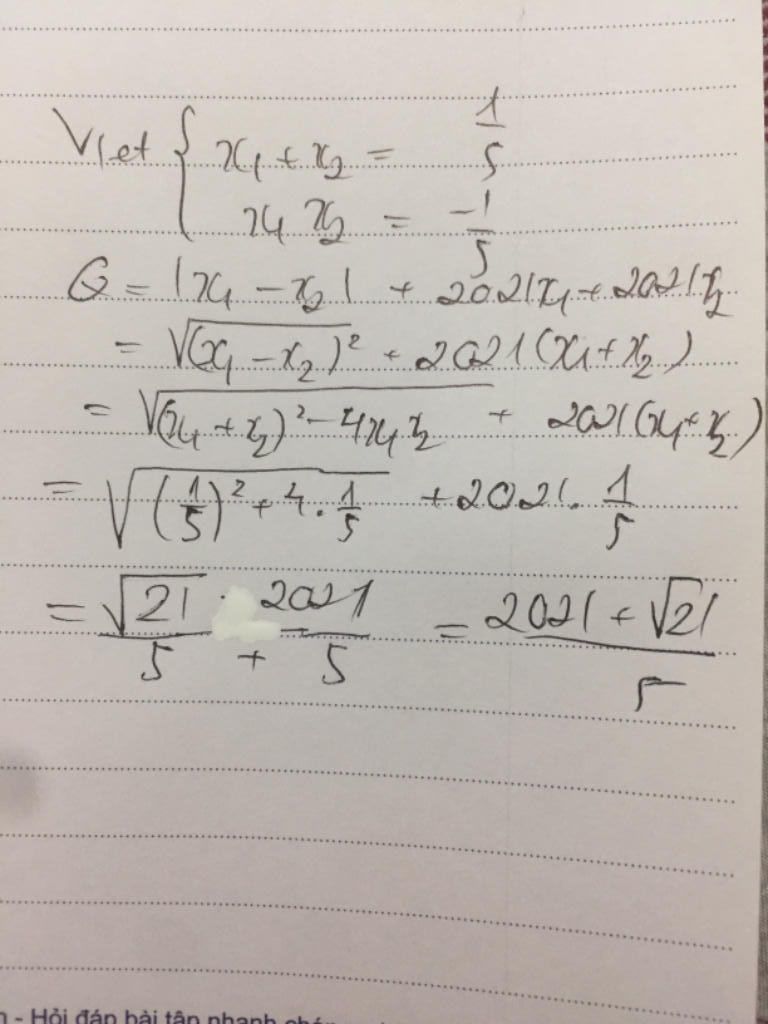 Viet { x₁ + x₂ = 1/5
x₁ x₂ = -1/5
Q = |x₁ - x₂| + 2021x₁ + 2021x₂
= √(x₁ - x₂)² + 2021(x₁ + x₂)
= √((x₁ + x₂)² - 4x₁x₂) + 2021(x₁ + x₂)
= √((1/5)² + 4 . 1/5) + 2021 . 1/5
= √21/5 + 2021/5 = (2021 + √21)/5
- Hỏi đáp bài tập nhanh